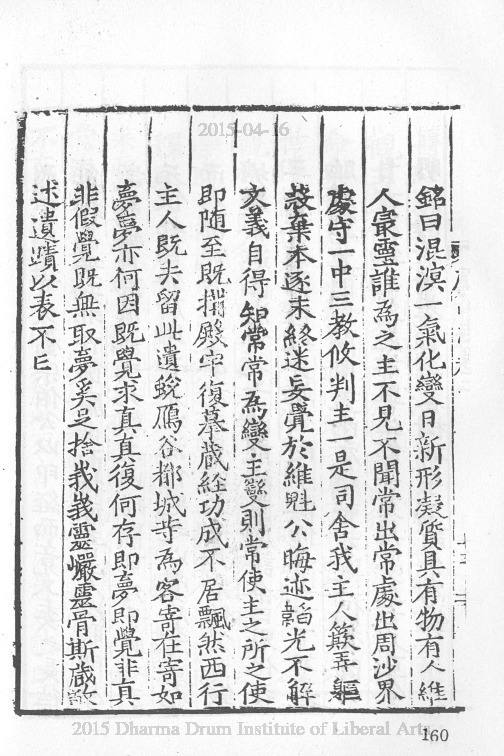 2015-04-16
銘曰混溟一氣化變日新形凝質具有物有人維
人最靈誰為之主不見不聞常出常處出周沙界
處守一中三教攸判主一是司舍我主人簸弄軀
殼棄本逐末終迷妄覺於維魁公晦迹韜光不解
文義自得知常常為變主變則常使主之所之使
即隨至既搆殿宇復摹藏経功成不居飄然西行
主人既去留此遺蛻鴈谷都城寺為客寄在寄如
夢夢亦何因既覺求真真復何存即夢即覺非真
非假覺既無取夢奚足捨峩峩靈巗靈骨斯藏敬
述遺蹟以表不亡
2015 Dharma Drum Institute of Liberal Arts
160